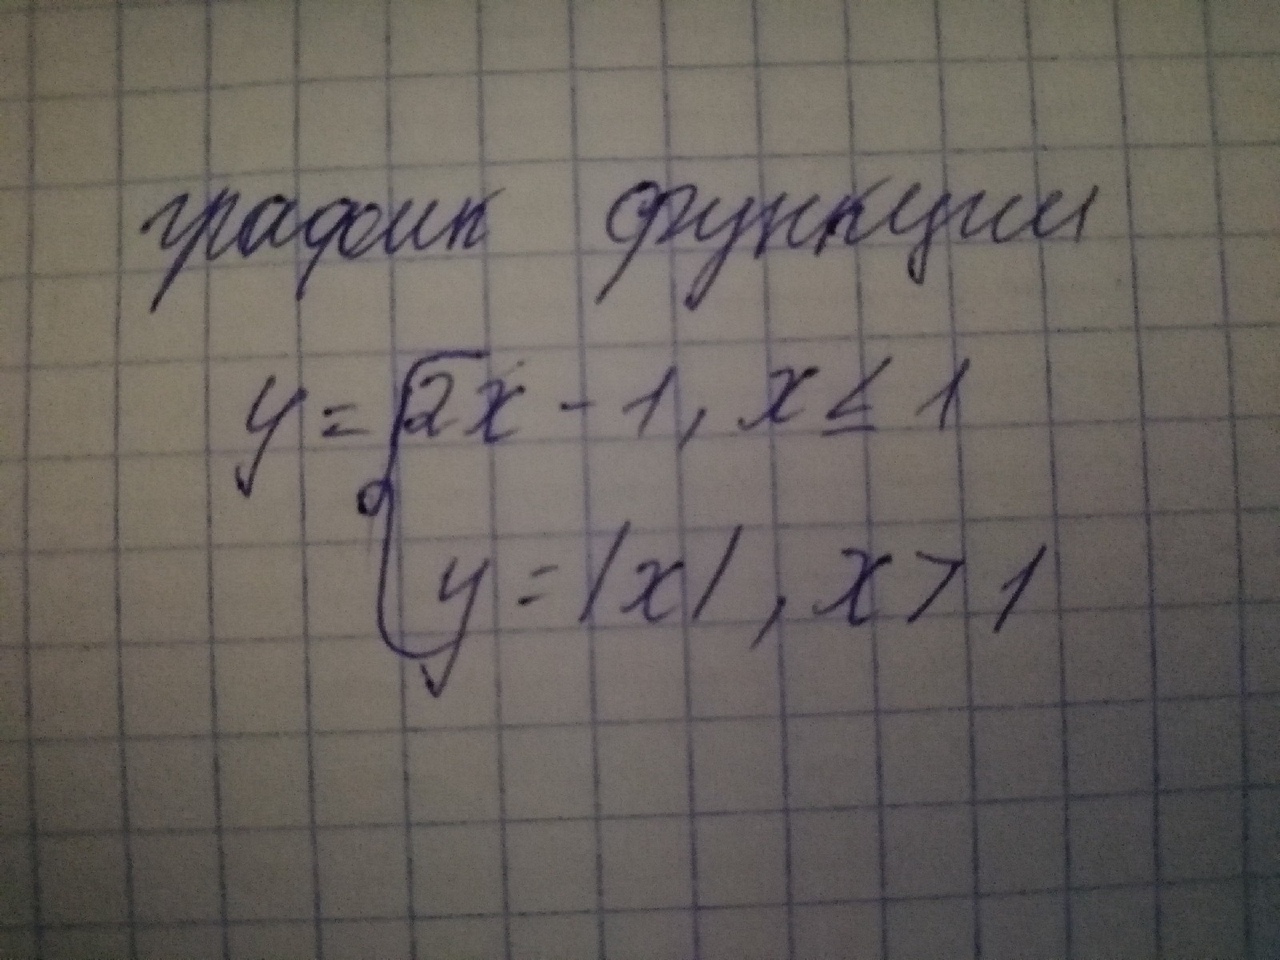 график функции
y = { 2x - 1, x ≤ 1
y = |x|, x > 1